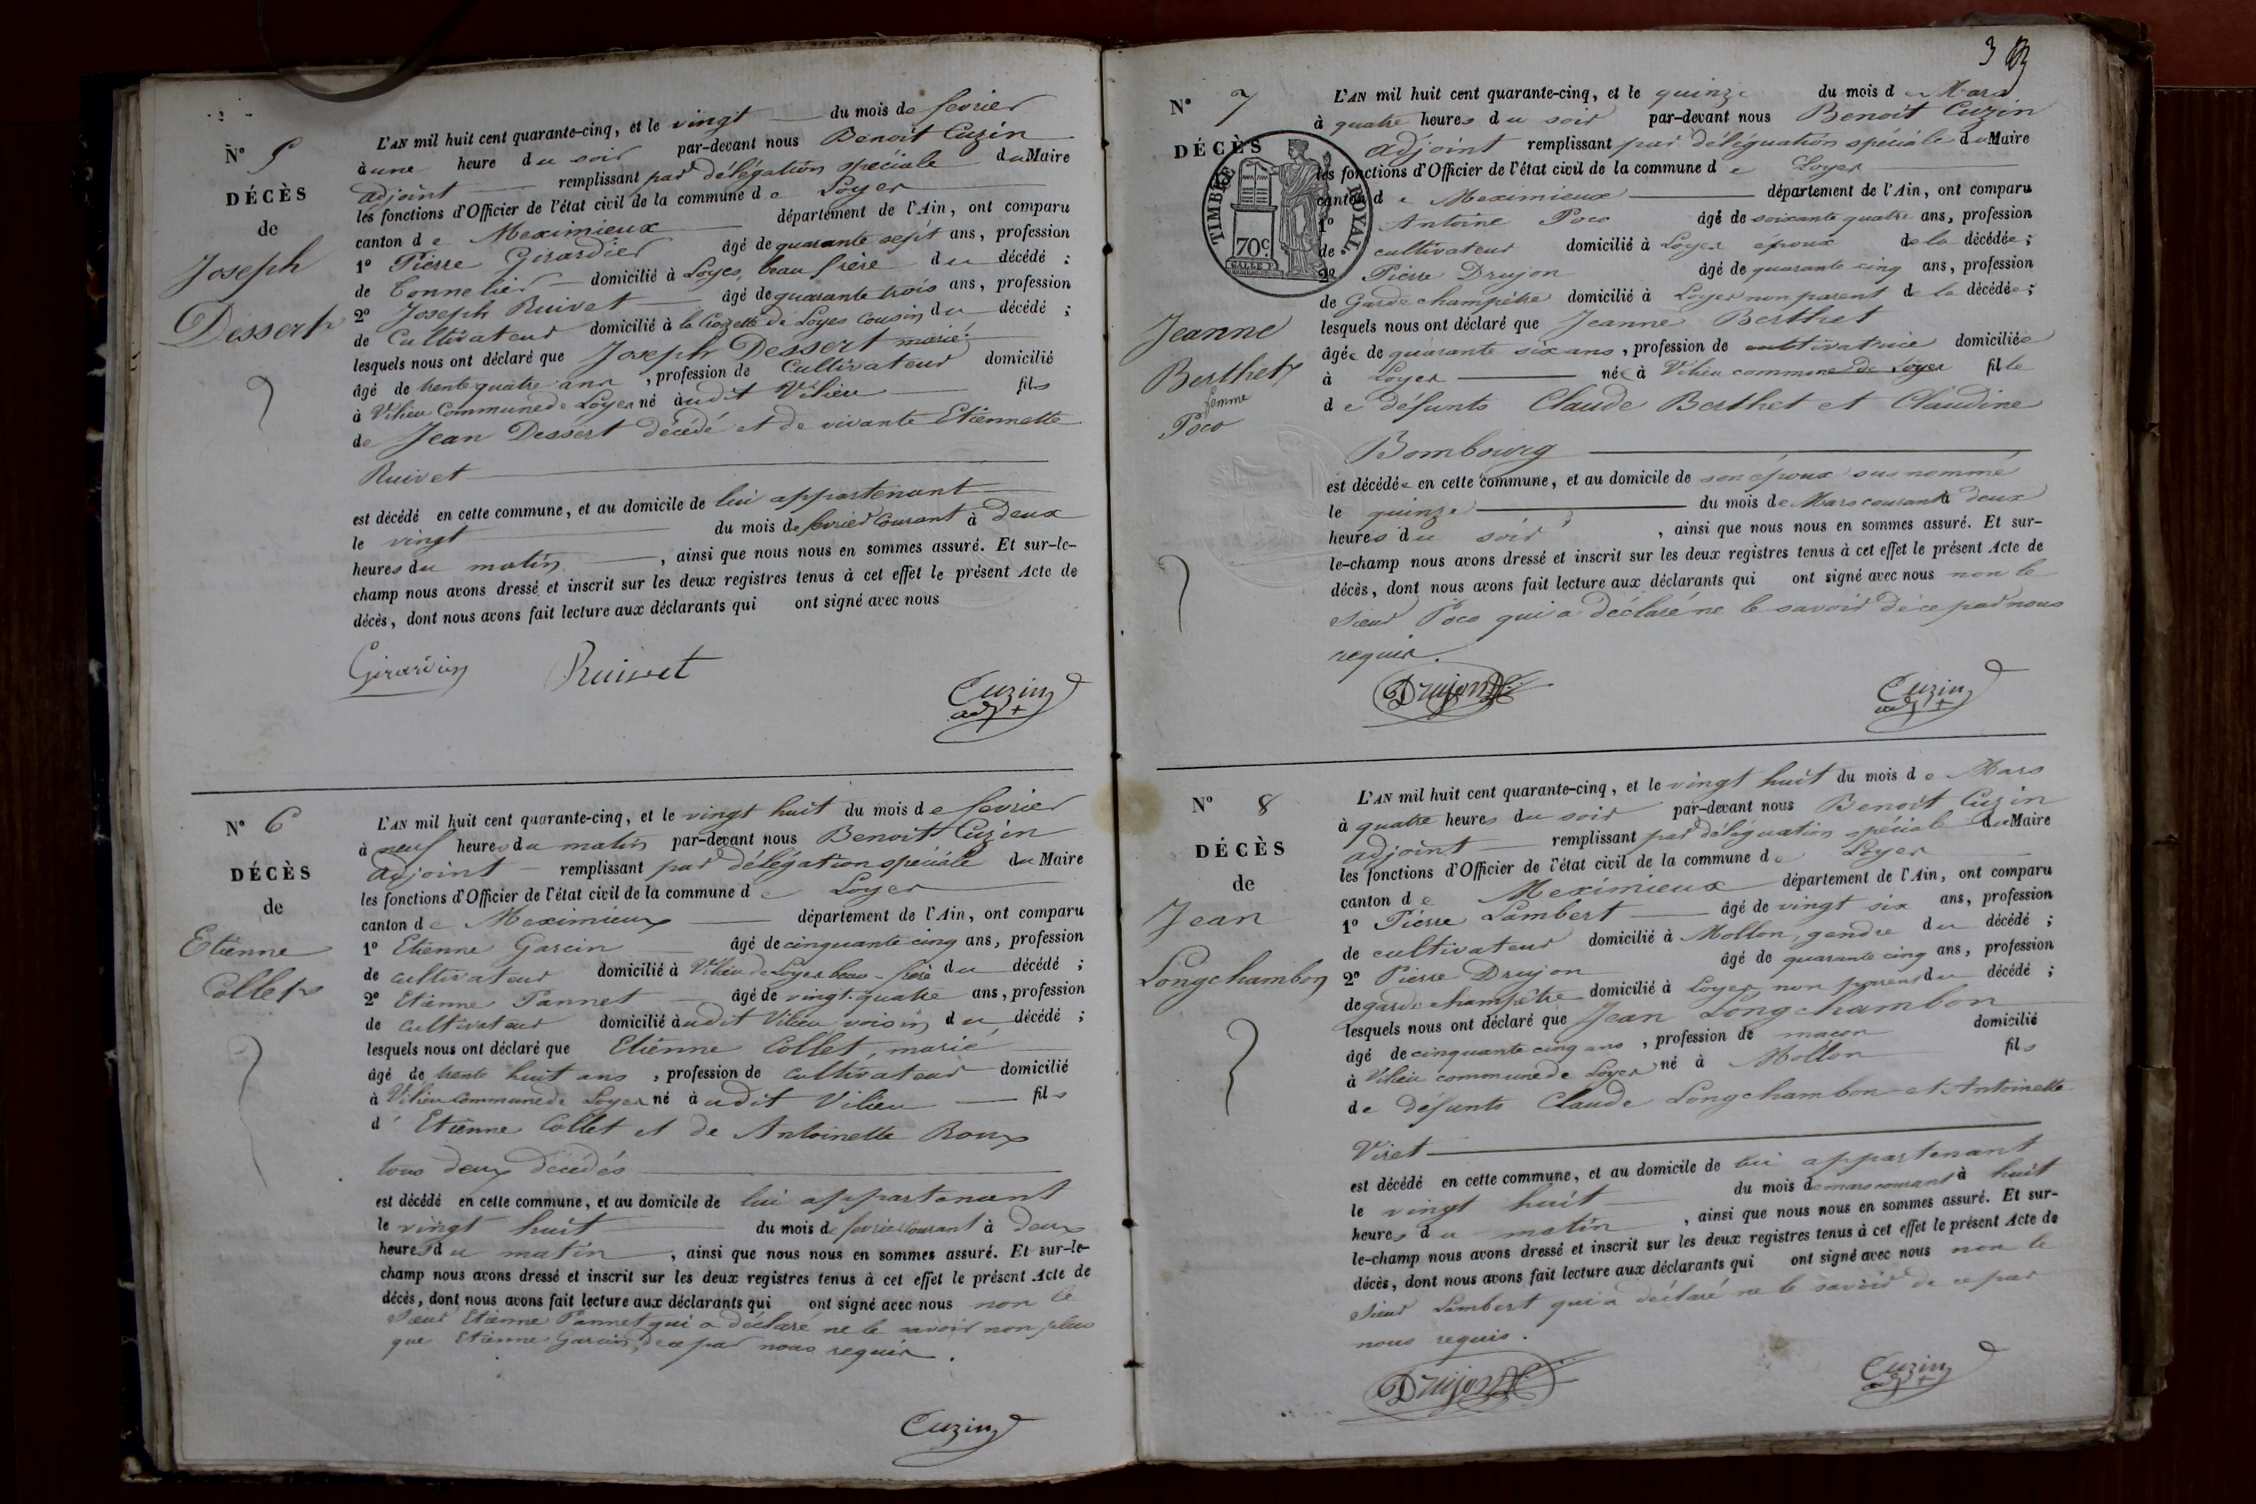 N° 5
DÉCÈS
de
Joseph
Dessert
L'AN mil huit cent quarante-cinq, et le vingt du mois de fevrier
à une heure du soir par-devant nous Benoit Cuzin
adjoint remplissant par délégation spéciale du Maire
les fonctions d'Officier de l'état civil de la commune de Loyes
canton de Meximieux département de l'Ain, ont comparu
1° Pierre Girardier âgé de quarante sept ans, profession
de Tonnelier domicilié à Loyes, beau frère du décédé ;
2° Joseph Ruivet âgé de quarante trois ans, profession
de Cultivateur domicilié à la Crozette de Loyes cousin du décédé ;
lesquels nous ont déclaré que Joseph Dessert marié
âgé de trente quatre ans , profession de Cultivateur domicilié
à Vilieu Commune de Loyes né audit Vilieu fils
de Jean Dessert décédé et de vivante Etiennette
Ruivet
est décédé en cette commune, et au domicile de lui appartenant
le vingt du mois de fevrier courant à deux
heures du matin , ainsi que nous nous en sommes assuré. Et sur-le-
champ nous avons dressé et inscrit sur les deux registres tenus à cet effet le présent Acte de
décès, dont nous avons fait lecture aux déclarants qui ont signé avec nous
Ruivet
Cuzin
adj
N° 6
DÉCÈS
de
Etienne
Collet
L'AN mil huit cent quarante-cinq, et le vingt huit du mois de fevrier
à neuf heures du matin par-devant nous Benoit Cuzin
adjoint remplissant par délégation spéciale du Maire
les fonctions d'Officier de l'état civil de la commune de Loyes
canton de Meximieux département de l'Ain, ont comparu
1° Etienne Garcin âgé de cinquante cinq ans, profession
de cultivateur domicilié à Vilieu de Loyes beau-frère du décédé ;
2° Etienne Pannet âgé de vingt-quatre ans, profession
de cultivateur domicilié audit Vilieu, voisin du décédé ;
lesquels nous ont déclaré que Etienne Collet, marié
âgé de trente huit ans , profession de cultivateur domicilié
à Vilieu commune de Loyes né audit Vilieu fils
d'Etienne Collet et de Antoinette Roux
tous deux décédés
est décédé en cette commune, et au domicile de lui appartenant
le vingt huit du mois de fevrier courant à deux
heures du matin , ainsi que nous nous en sommes assuré. Et sur-le-
champ nous avons dressé et inscrit sur les deux registres tenus à cet effet le présent Acte de
décès, dont nous avons fait lecture aux déclarants qui ont signé avec nous non le
sieur Etienne Pannet qui a déclaré ne le savoir non plus
que Etienne Garcin, de ce par nous requis.
Cuzin
3
N° 7
DÉCÈS
TIMBRE ROYAL
70c.
Jeanne
Berthet
femme
Poco
L'AN mil huit cent quarante-cinq, et le quinze du mois de Mars
à quatre heures du soir par-devant nous Benoit Cuzin
adjoint remplissant par déléguation spéciale du Maire
les fonctions d'Officier de l'état civil de la commune de Loyes
canton de Meximieux département de l'Ain, ont comparu
1° Antoine Poco âgé de soixante quatre ans, profession
de cultivateur domicilié à Loyes époux de la décédée ;
2° Pierre Drujon âgé de quarante cinq ans, profession
de Garde champêtre domicilié à Loyes non parent de la décédée ;
lesquels nous ont déclaré que Jeanne Berthet
âgée de quarante six ans , profession de cultivatrice domiciliée
à Loyes née à Vilieu commune de Loyes fille
de défunts Claude Berthet et Claudine
Bombourg
est décédée en cette commune, et au domicile de son époux sus nommé
le quinze du mois de Mars courant à deux
heures du soir , ainsi que nous nous en sommes assuré. Et sur-
le-champ nous avons dressé et inscrit sur les deux registres tenus à cet effet le présent Acte de
décès, dont nous avons fait lecture aux déclarants qui ont signé avec nous non le
sieur Poco qui a déclaré ne le savoir de ce par nous
requis.
Drujon
Cuzin
adj
N° 8
DÉCÈS
de
Jean
Longchambon
L'AN mil huit cent quarante-cinq, et le vingt huit du mois de Mars
à quatre heures du soir par-devant nous Benoit Cuzin
adjoint remplissant par déléguation spéciale du Maire
les fonctions d'Officier de l'état civil de la commune de Loyes
canton de Meximieux département de l'Ain, ont comparu
1° Pierre Lambert âgé de vingt six ans, profession
de cultivateur domicilié à Mollon, gendre du décédé ;
2° Pierre Drujon âgé de quarante cinq ans, profession
de garde champêtre domicilié à Loyes non parent du décédé ;
lesquels nous ont déclaré que Jean Longchambon
âgé de cinquante cinq ans , profession de maçon domicilié
à Vilieu commune de Loyes né à Mollon fils
de défunts Claude Longchambon et Antoinette
Viret
est décédé en cette commune, et au domicile de lui appartenant
le vingt huit du mois de mars courant à huit
heures du matin , ainsi que nous nous en sommes assuré. Et sur-
le-champ nous avons dressé et inscrit sur les deux registres tenus à cet effet le présent Acte de
décès, dont nous avons fait lecture aux déclarants qui ont signé avec nous non le
sieur Lambert qui a déclaré ne le savoir de ce par
nous requis.
Drujon
Cuzin